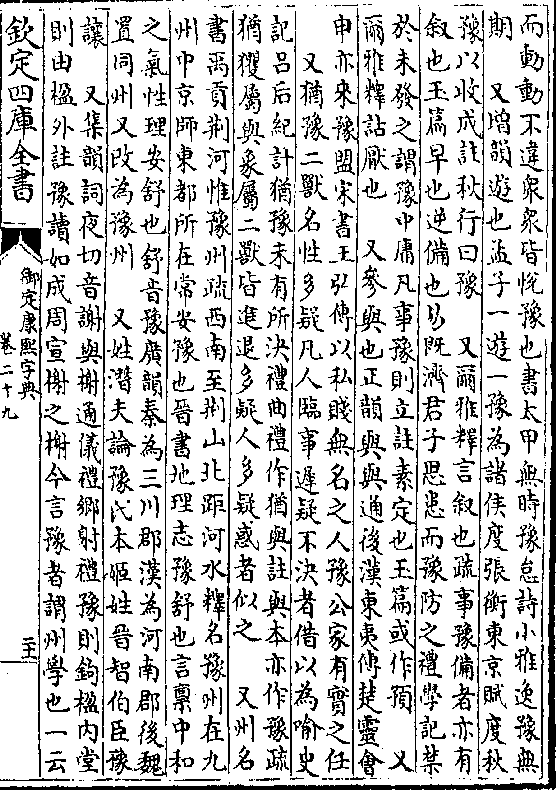 而動動不違衆衆皆悅豫也書太甲無時豫怠詩小雅逸豫無
期　又增韻遊也孟子一遊一豫為諸侯度張衡東京賦度秋
豫以收成註秋行曰豫　又爾雅釋言叙也疏事豫備者亦有
叙也玉篇早也逆備也易既濟君子思患而豫防之禮學記禁
於未發之謂豫中庸凡事豫則立註素定也玉篇或作預　又
爾雅釋詁厭也　又參與也正韻與與通後漢東夷傳楚靈會
申亦來豫盟宋書王弘傳以私賤無名之人豫公家有實之任
又猶豫二獸名性多疑凡人臨事遲疑不決者借以為喻史
記呂后紀計猶豫未有所決禮曲禮作猶與註與本亦作豫疏
猶玃屬與象屬二獸皆進退多疑人多疑惑者似之　又州名
書禹貢荆河惟豫州疏西南至荆山北距河水釋名豫州在九
州中京師東都所在常安豫也晉書地理志豫舒也言禀中和
之氣性理安舒也舒音豫廣韻秦為三川郡漢為河南郡後魏
置同州又改為豫州　又姓潛夫論豫氏本姬姓晉智伯臣豫
讓　又集韻詞夜切音謝與榭通儀禮鄉射禮豫則鉤楹內堂
則由楹外註豫讀如成周宣榭之榭今言豫者謂州學也一云
欽定四庫全書
御定康熙字典
卷二十九